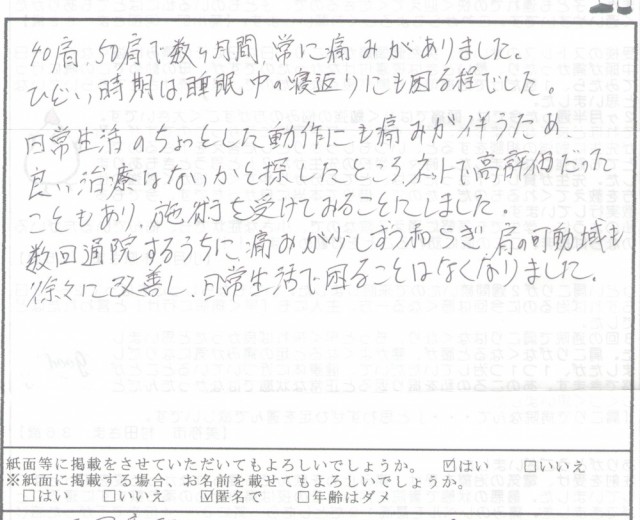 40肩、50肩で数ヶ月間、常に痛みがありました。
ひどい時期は、睡眠中の寝返りにも困る程でした。
日常生活のちょっとした動作にも痛みが伴うため、
良い治療はないかと探したところ、ネットで高評価だった
こともあり、施術を受けてみることにしました。
数回通院するうちに、痛みが少しずつ和らぎ、肩の可動域も
徐々に改善し、日常生活で困ることはなくなりました。
紙面等に掲載をさせていただいてもよろしいでしょうか。 ☑はい □いいえ
※紙面に掲載する場合、お名前を載せてもよろしいでしょうか。
□はい □いいえ ☑匿名で □年齢はダメ